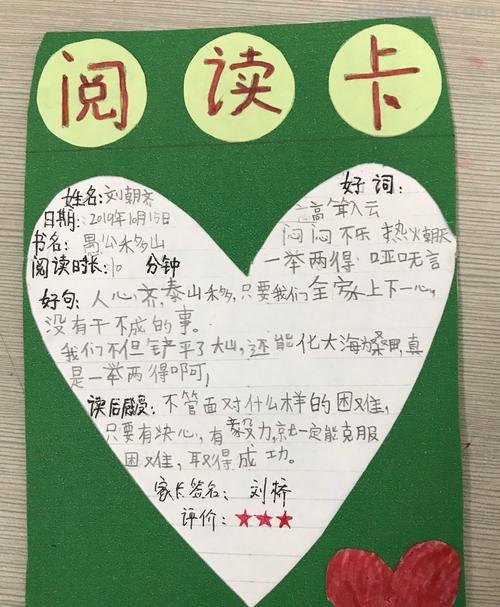 阅读卡
姓名:刘朝齐
日期:2019年10月15日
书名:愚公移山
阅读时长:10 分钟
好词:
高耸入云
闷闷不乐 热火朝天
一举两得 哑口无言
好句:人心齐,泰山移,只要我们全家上下一心,
没有干不成的事。
我们不但铲平了大山,还能化大海为桑田,真
是一举两得啊!
读后感受:不管面对什么样的困难,
只要有决心,有毅力,就一定能克服
困难,取得成功。
家长签名:刘桥
评价:★★★